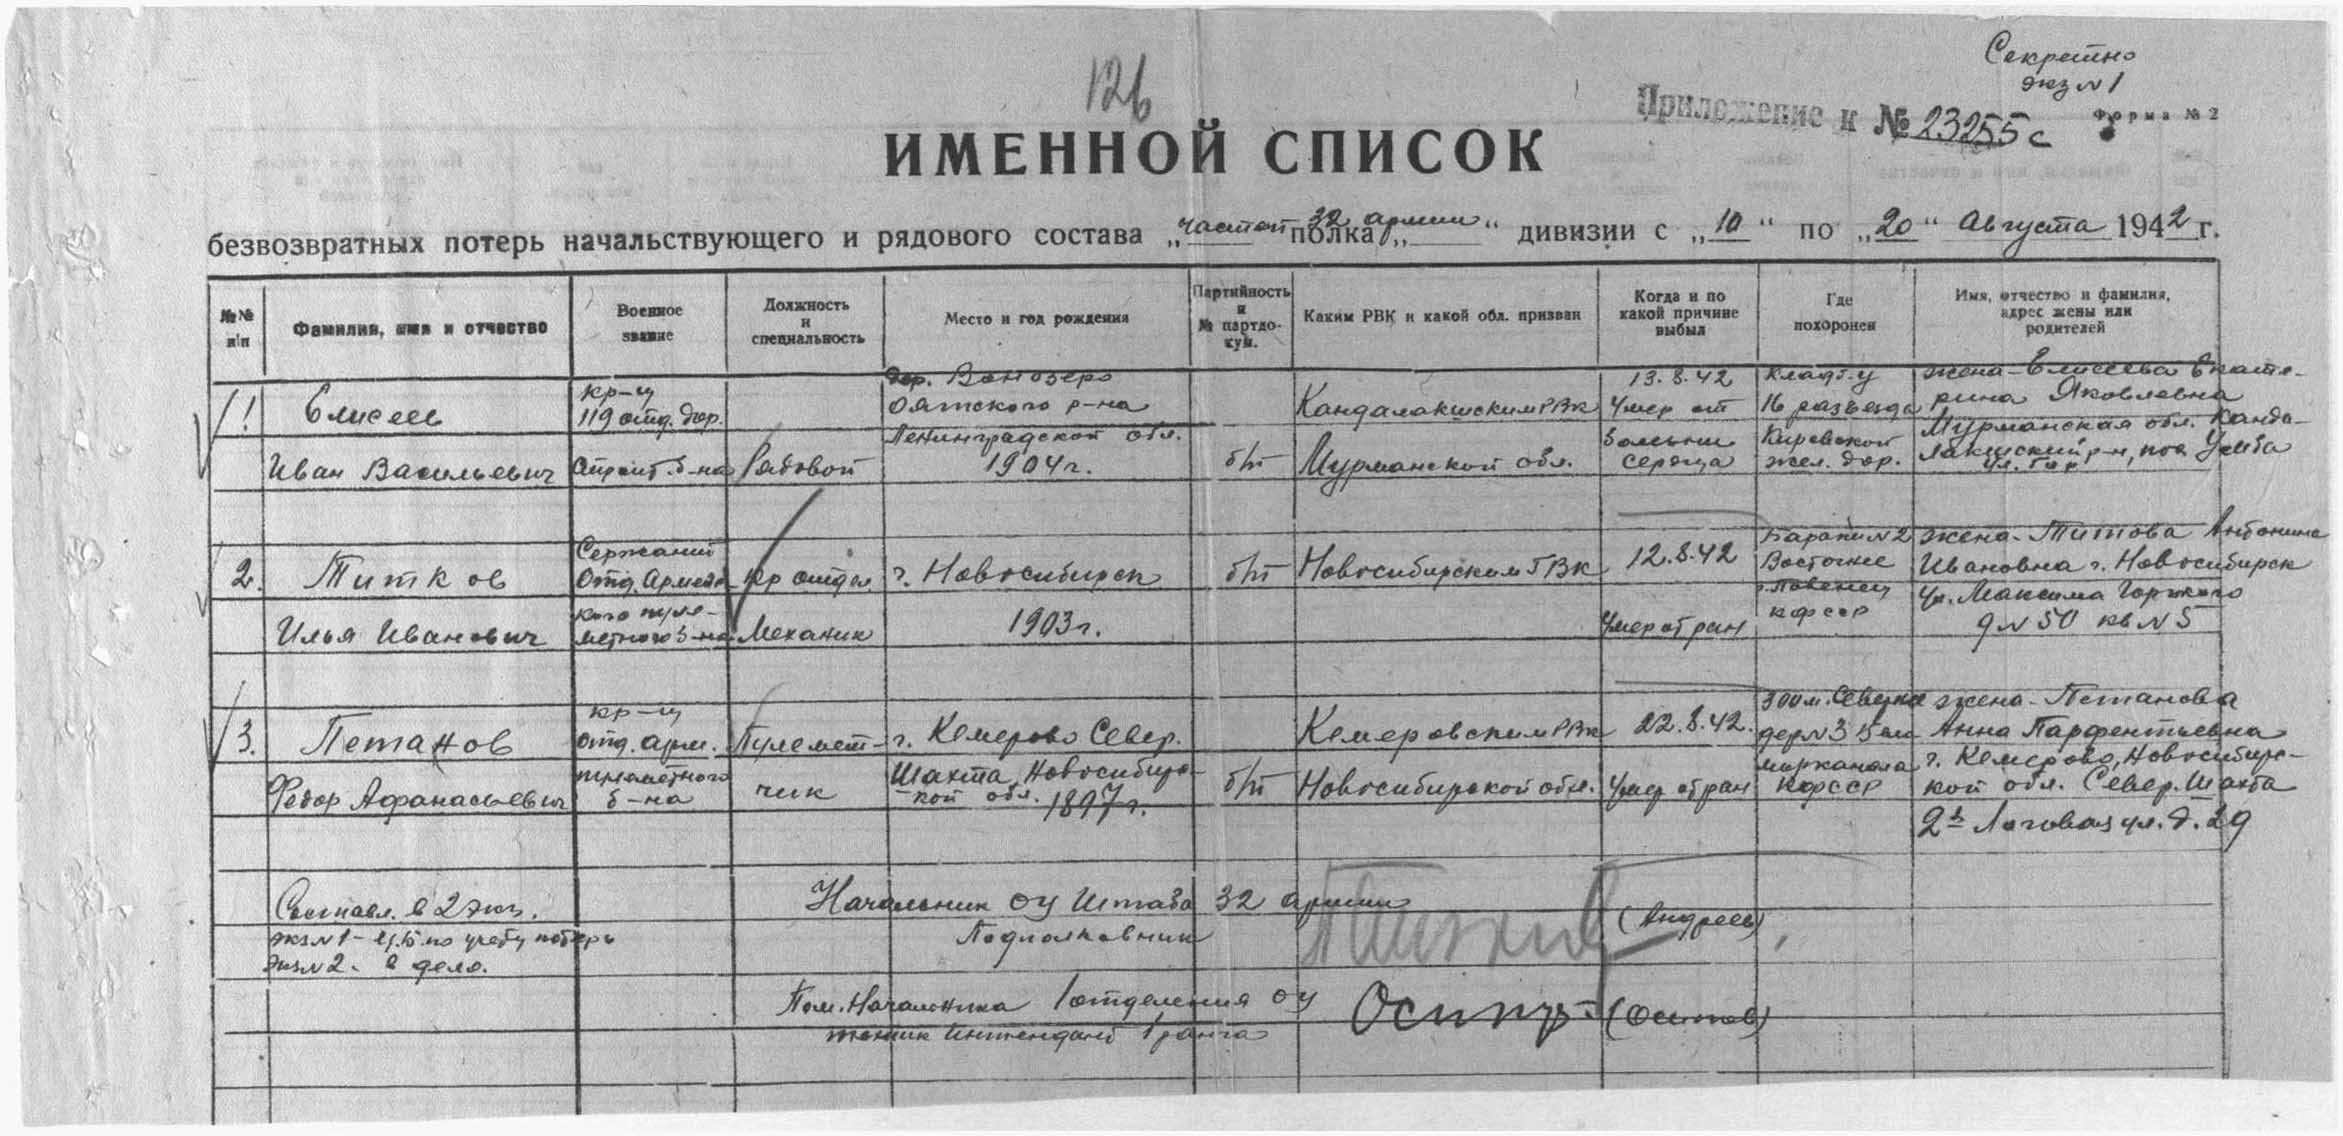 126
Секретно
экз № 1
Приложение к № 23255с
Форма № 2
ИМЕННОЙ СПИСОК
безвозвратных потерь начальствующего и рядового состава „частей полка 32 армии“ дивизии с „10“ по „20“ Августа 1942 г.
№№ п/п
Фамилия, имя и отчество
Военное звание
Должность и специальность
Место и год рождения
Партийность и № партдокум.
Каким РВК и какой обл. призван
Когда и по какой причине выбыл
Где похоронен
Имя, отчество и фамилия, адрес жены или родителей
1
Елисеев
Иван Васильевич
кр-ц
119 отд. дор.
б-на
Рядовой
дер. Вонозеро
Оятского р-на
Ленинградской обл.
1904 г.
б/п
Кандалакшским РВК
Мурманской обл.
13.8.42
Умер от
болезни
сердца
Кладб-щ
16 разъезда
Кировской
жел. дор.
жена - Елисеева Екате-
рина Яковлевна
Мурманская обл. Канда-
лакшский р-н, пос Умба
2.
Титков
Илья Иванович
Сержант
Отд. Армейс-
кого пуле-
метного б-на
Кр отдел.
Механик
г. Новосибирск
1903 г.
б/п
Новосибирским ГВК
12.8.42
Умер от ран
Бараки № 2
Восточнее
г. Повенец
КФССР
жена - Титова Антонина
Ивановна г. Новосибирск
ул. Максима Горького
д № 50 кв № 5
3.
Петанов
Федор Афанасьевич
кр-ц
отд. арм.
пулеметного
б-на
Пулемет-
чик
г. Кемерово Север.
Шахта, Новосибирс-
кой обл.
1897 г.
б/п
Кемеровским РВК
Новосибирской обл.
22.8.42.
Умер от ран
300 м. Севернее
КФССР
жена - Петанова
Анна Парфентьевна
г. Кемерово, Новосибирс-
кой обл. Север. Шахта
2я Логовая ул. д. 29
Составл. в 2 экз.
экз № 1 - по учету потерь
экз № 2 - в дело.
Начальник ОУ Штаба 32 армии
Подполковник
(Андреев)
Пом. Начальника 1 отделения ОУ
техник Интендант 1 ранга
Осипов (Осипов)